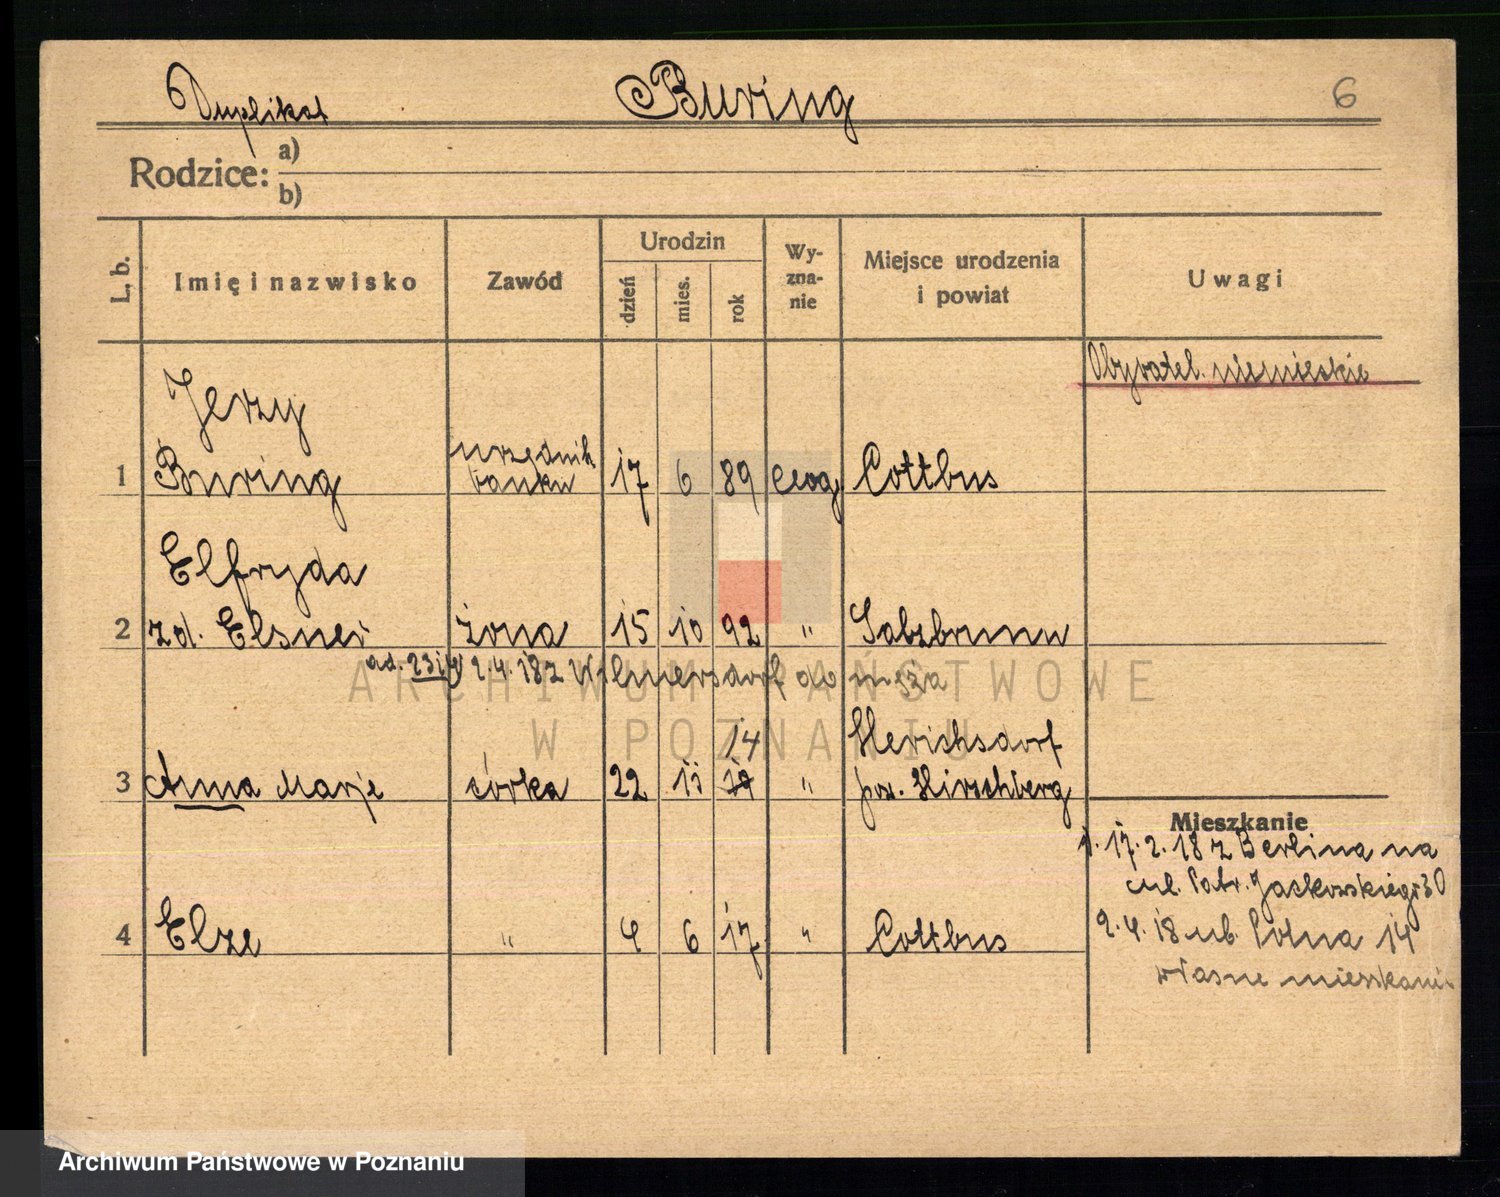 Duplikat Buring 6
Rodzice: a)
b)
L. b.
Imię i nazwisko
Zawód
Urodzin
dzień mies. rok
Wy-
zna-
nie
Miejsce urodzenia
i powiat
Uwagi
Obywatel. niemieckie
Jerzy
urzędnik
1 Buring banku 17 6 89 ewg Cottbus
Elfryda
2 zd. Elsner żona 15 10 92 " Salzbrunn
ad. 23i4 2.4.18 z Wilmersdorf do męża
14 Herischsdorf
3 Anna Marje córka 22 11 pow. Hirschberg
4 Elze " 4 6 17 " Cottbus
Mieszkanie
17.2.18 z Berlina na
ul. Patr. Jackowskiego 30
2.4.18 ul. Polna 14
własne mieszkanie
ARCHIWUM PAŃSTWOWE
W POZNANIU
Archiwum Państwowe w Poznaniu